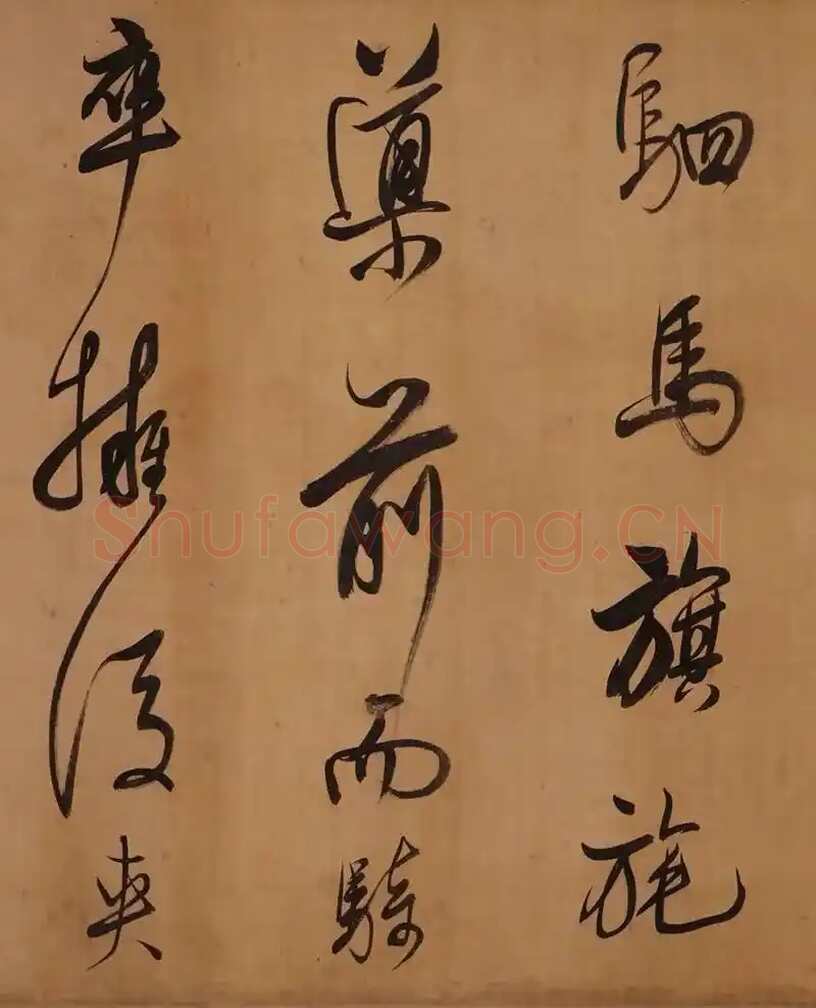 駟馬旗旄
導前而騎
卒擁後夾
Shufawang.CN